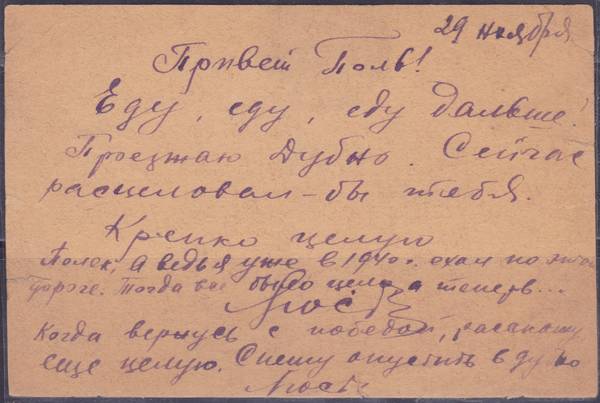 29 ноября
Привет Поль!
Еду, еду, еду дальше!
Проезжаю Дубно. Сейчас
расцеловал-бы тебя.
Крепко целую
Полек, а ведь я уже в 1940 г. ехал по этой
дороге. Тогда все было цело, а теперь...
Когда вернусь с победой, расскажу
еще целую. Спешу опустить в Дубно